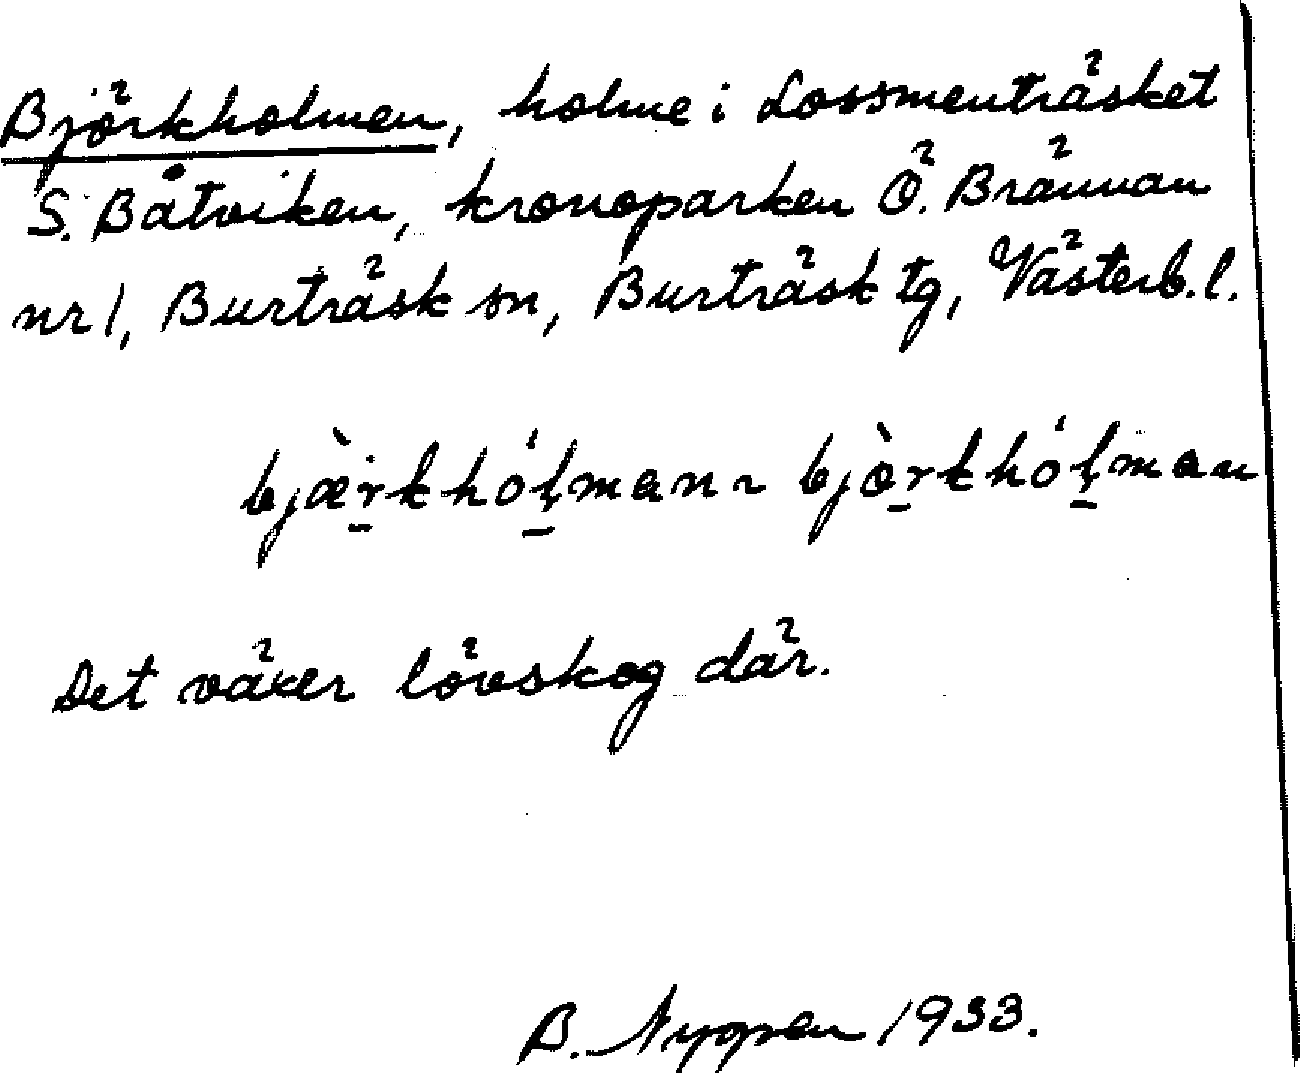 Björkholmen, holme i Lossmenträsket
S. Båtviken, kronoparken Ö. Brännan
nr 1, Burträsk sn, Burträsk tg, Västerb. l.
bjæ̀r̠khóḷ̠man ~ bjòr̠khóḷ̠man
Det växer lövskog där.
B. Nygren 1933.